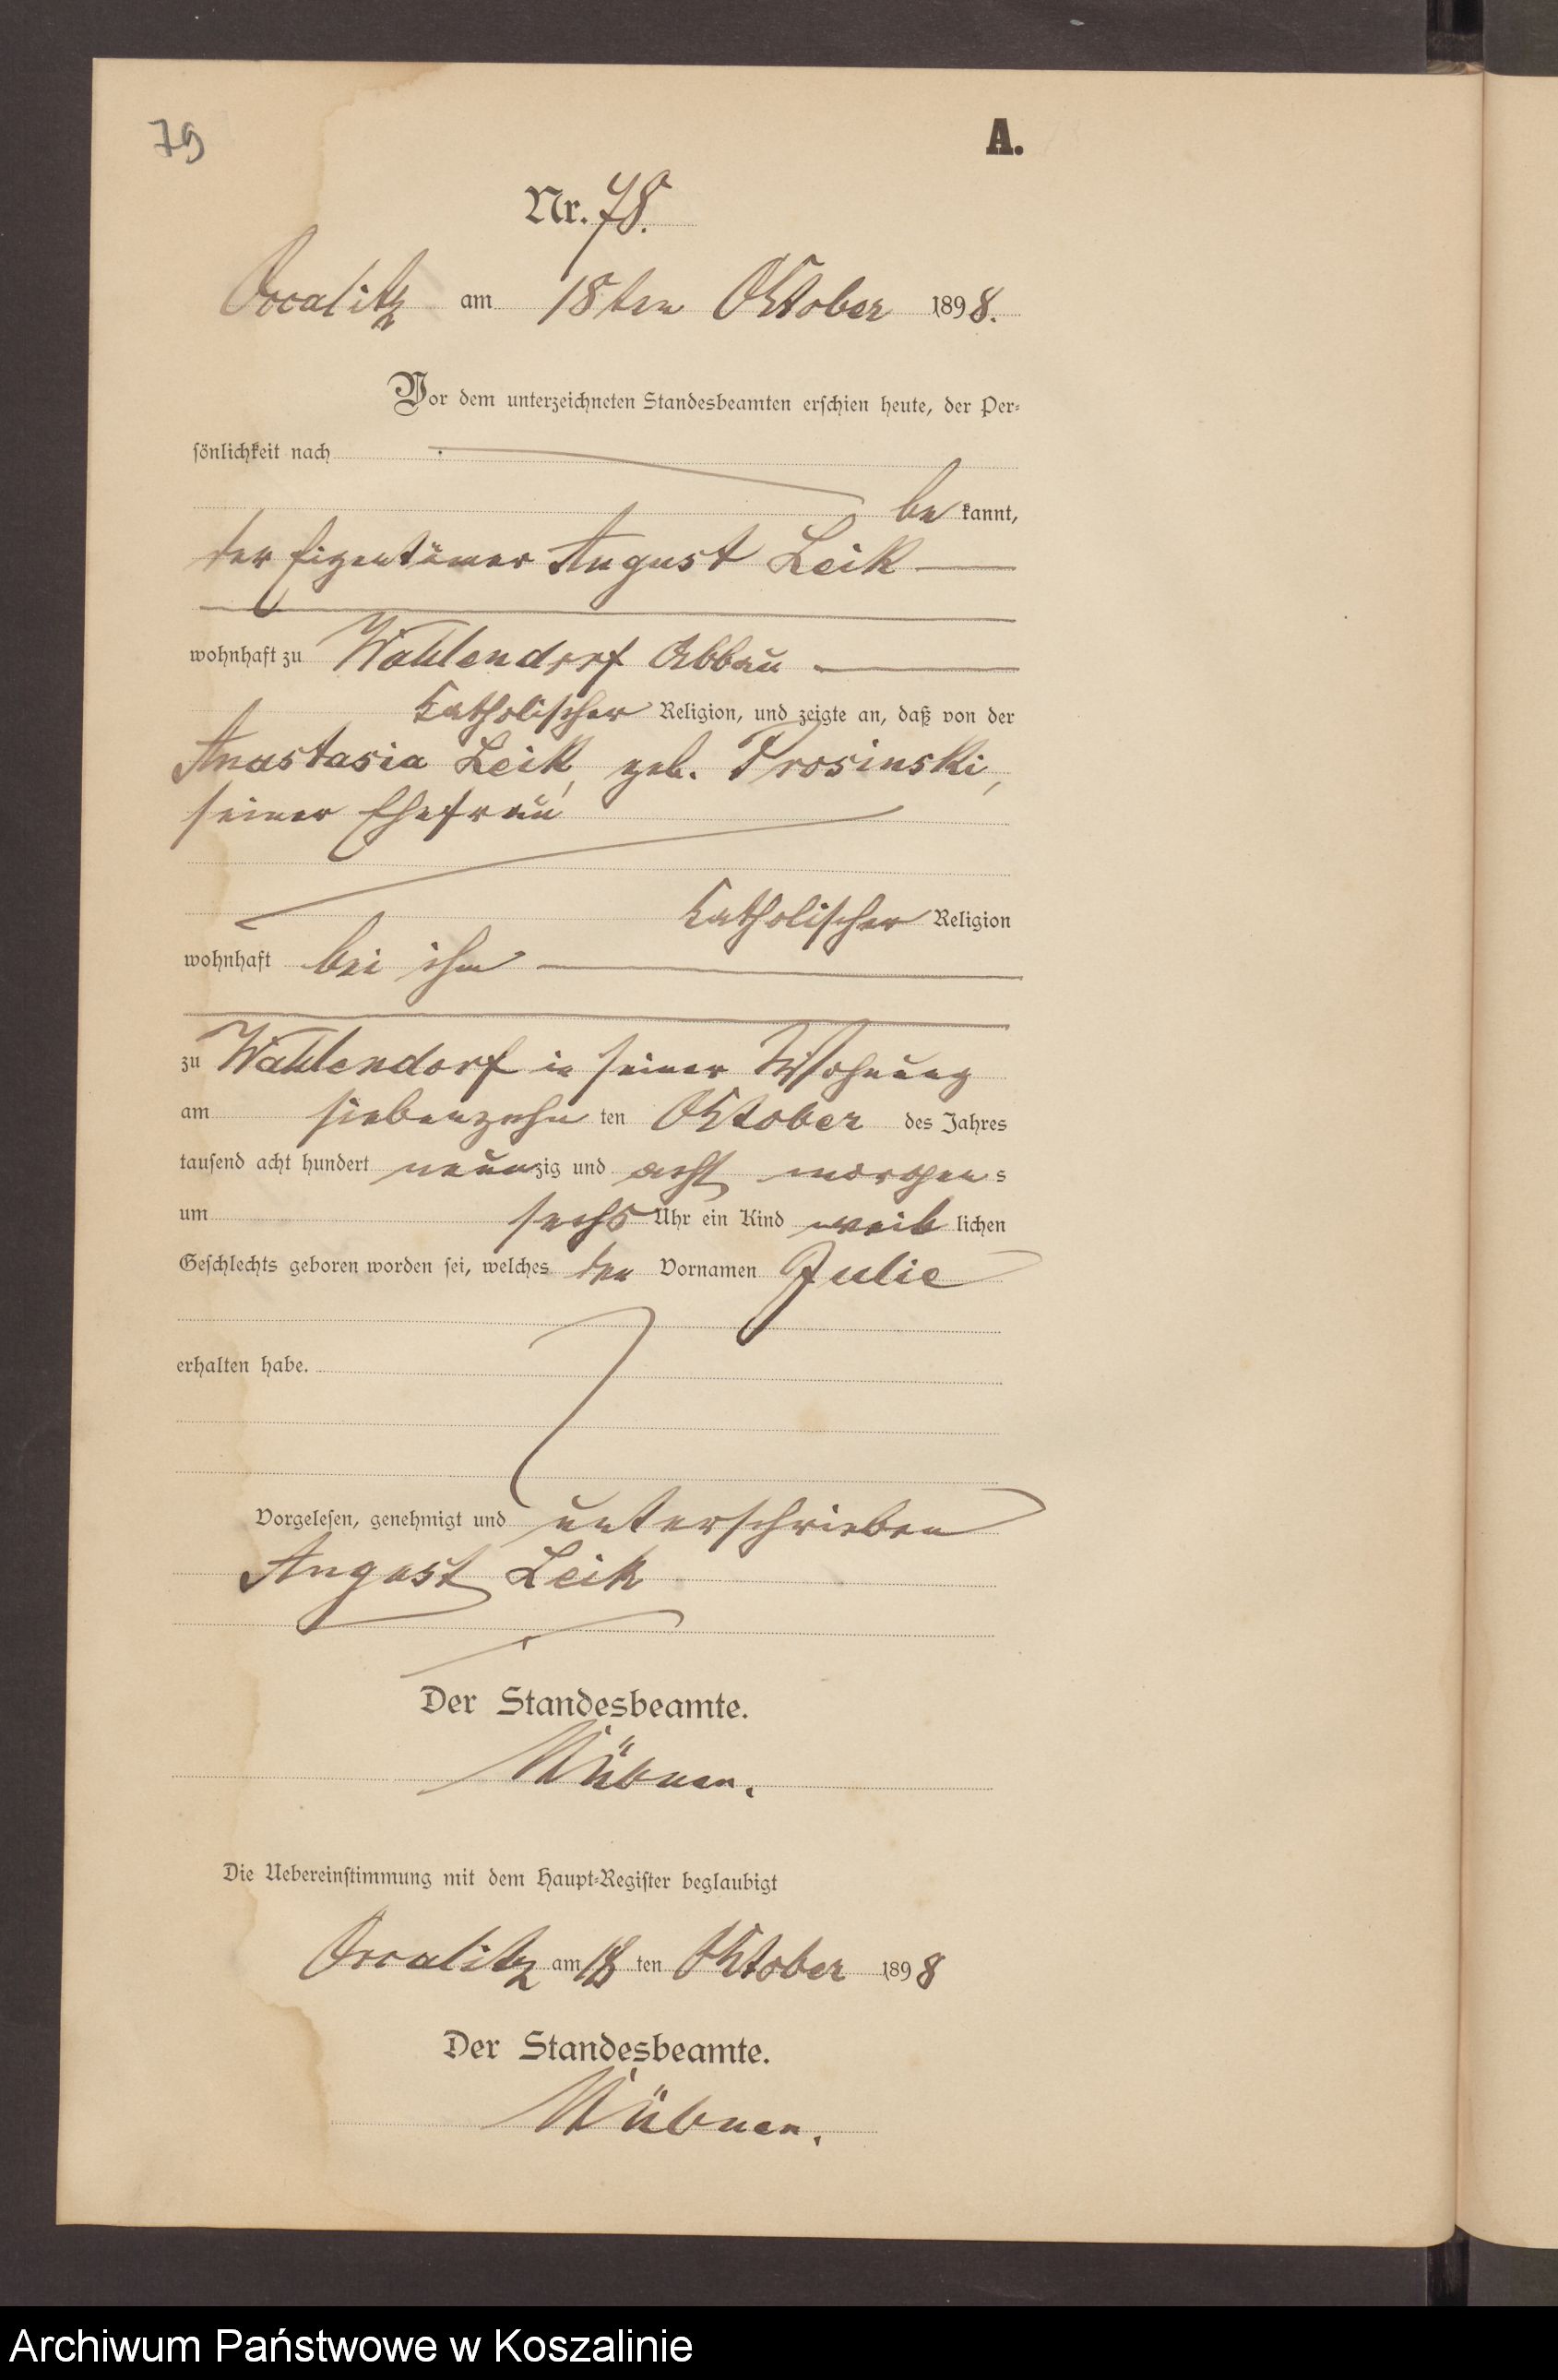 79
A.
Nr. 78.
Occalitz am 18ten Oktober 1898.
Vor dem unterzeichneten Standesbeamten erschien heute, der Per-
sönlichkeit nach
be kannt,
der Eigentümer August Leik
wohnhaft zu Wahlendorf Abbau
katholischer Religion, und zeigte an, daß von der
Anastasia Leik, geb. Prosinski,
seiner Ehefrau
katholischer Religion
wohnhaft bei ihm
zu Wahlendorf in seiner Wohnung
am siebenzehn ten Oktober des Jahres
tausend acht hundert neunzig und acht morgens
um sechs Uhr ein Kind weib lichen
Geschlechts geboren worden sei, welches den Vornamen Julie
erhalten habe.
Vorgelesen, genehmigt und unterschrieben
August Leik
Der Standesbeamte.
Die Uebereinstimmung mit dem Haupt-Register beglaubigt
Occalitz am 18 ten Oktober 1898
Der Standesbeamte.
Archiwum Państwowe w Koszalinie